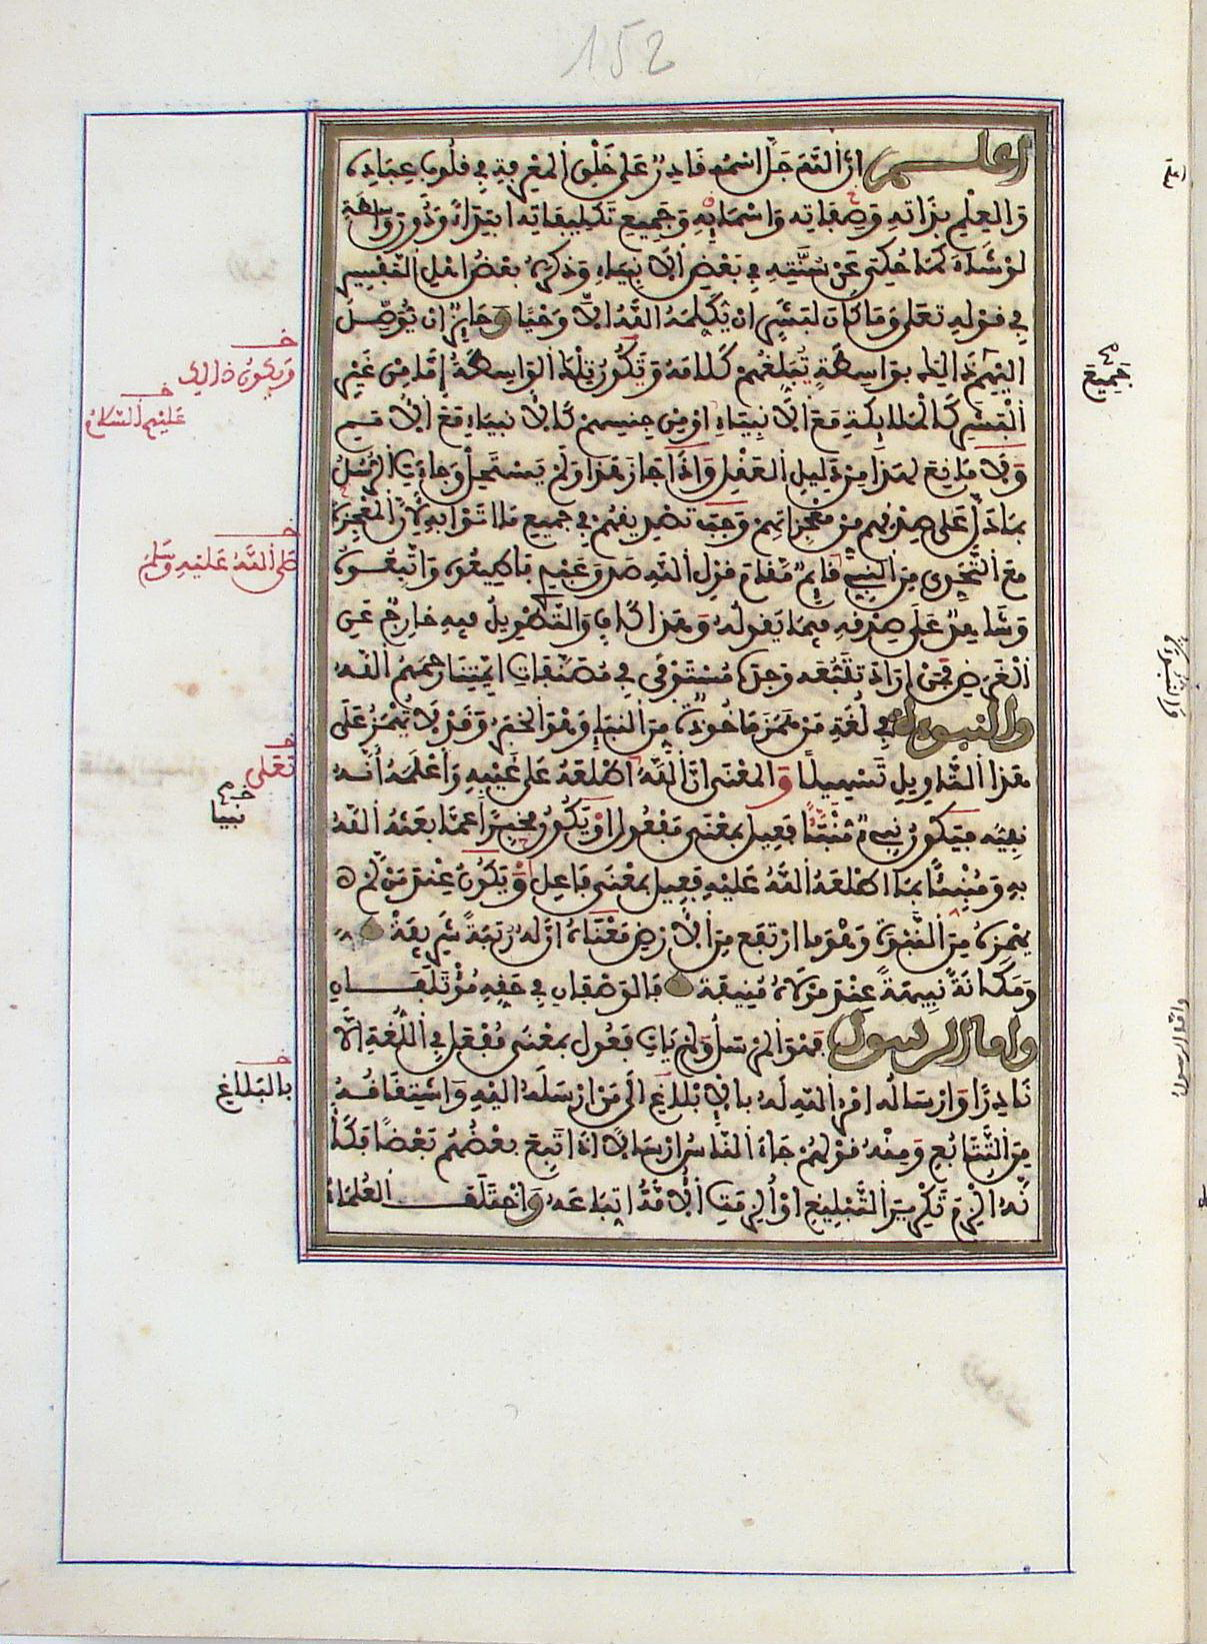 152
اعلم أن الله جل اسمه قادر على خلق المعرفة في قلوب عباده
والعلم بذاته وصفاته واسمايه وجميع تكليفاته ابتداء دون واسطة
لو شاء كما حكي عن سنته في بعض الانبياء وذكره بعض اهل التفسير
في قوله تعلى وما كان لبشر ان يكلمه الله الا وحيا وجايز ان يوصل
اليهم ذالك بواسطة تبلغهم كلامه وتكون تلك الواسطة إما من غير
البشر كالملايكة مع الانبياء او من جنسهم كالانبياء مع الامم
ولا مانع لهذا من دليل العقل واذا جاز هذا ولم يستحل وجاءت الرسل
بما دل على صدقهم من معجزاتهم وجب تصديقهم في جميع ما اتوا به لان المعجزة
مع التحدي من النبي قايم مقام قول الله صدق عبدي فاطيعوه واتبعوه
وشاهد على صدقه فيما يقوله وهذا كاف والتطويل فيه خارج عن
الغرض فمن اراد تتبعه وجده مستوفى في مصنفات ايمتنا رحمهم الله
والنبوءة في لغة من همز ماخوذة من النبإ وهو الخبر وقد لا تهمز على
هذا التاويل تسهيلا والمعنى ان الله اطلعه على غيبه واعلمه انه
نبيه فيكون نبيء منبأ فعيل بمعنى مفعول او يكون مخبرا عما بعثه الله
به ومنبئا بما اطلعه الله عليه فعيل بمعنى فاعل ويكون عند من لم
يهمزه من النبوة وهو ما ارتفع من الارض معناه ان له رتبة شريفة
ومكانة نبيهة عند مولاه منيفة فالوصفان في حقه مؤتلفان
واما الرسول فهو المرسل ولم يات فعول بمعنى مفعل في اللغة الا
نادرا وارساله امر الله له بالابلاغ الى من ارسله اليه واشتقاقه
من التتابع ومنه قولهم جاء الناس ارسالا اذا اتبع بعضهم بعضا فكأ
نه الزم تكرير التبليغ او الزمت الامة اتباعه واختلف العلماء
خـ
ويكون ذالك
خـ
عليهم السلام
خـ
صلى الله عليه وسلم
خـ
تعلى
خـ
نبيا
خـ
بالبلاغ
جميع
واما الرسول